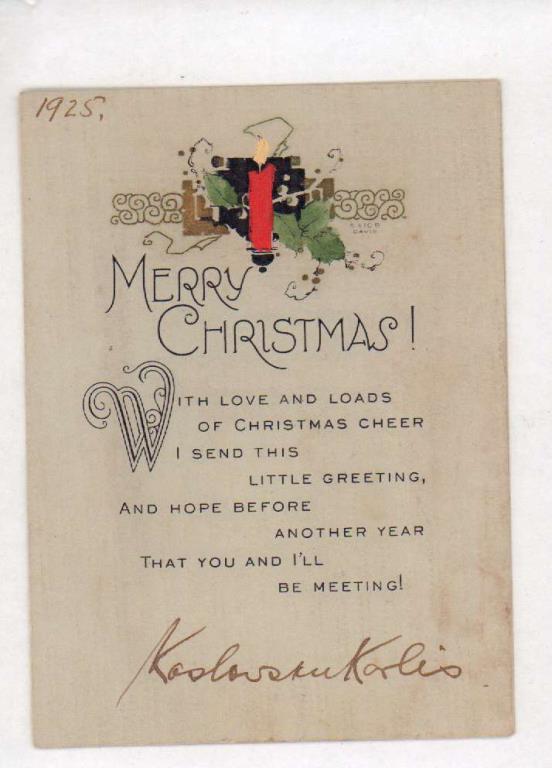 1925.
MERRY
CHRISTMAS!
WITH LOVE AND LOADS
OF CHRISTMAS CHEER
I SEND THIS
LITTLE GREETING,
AND HOPE BEFORE
ANOTHER YEAR
THAT YOU AND I'LL
BE MEETING!